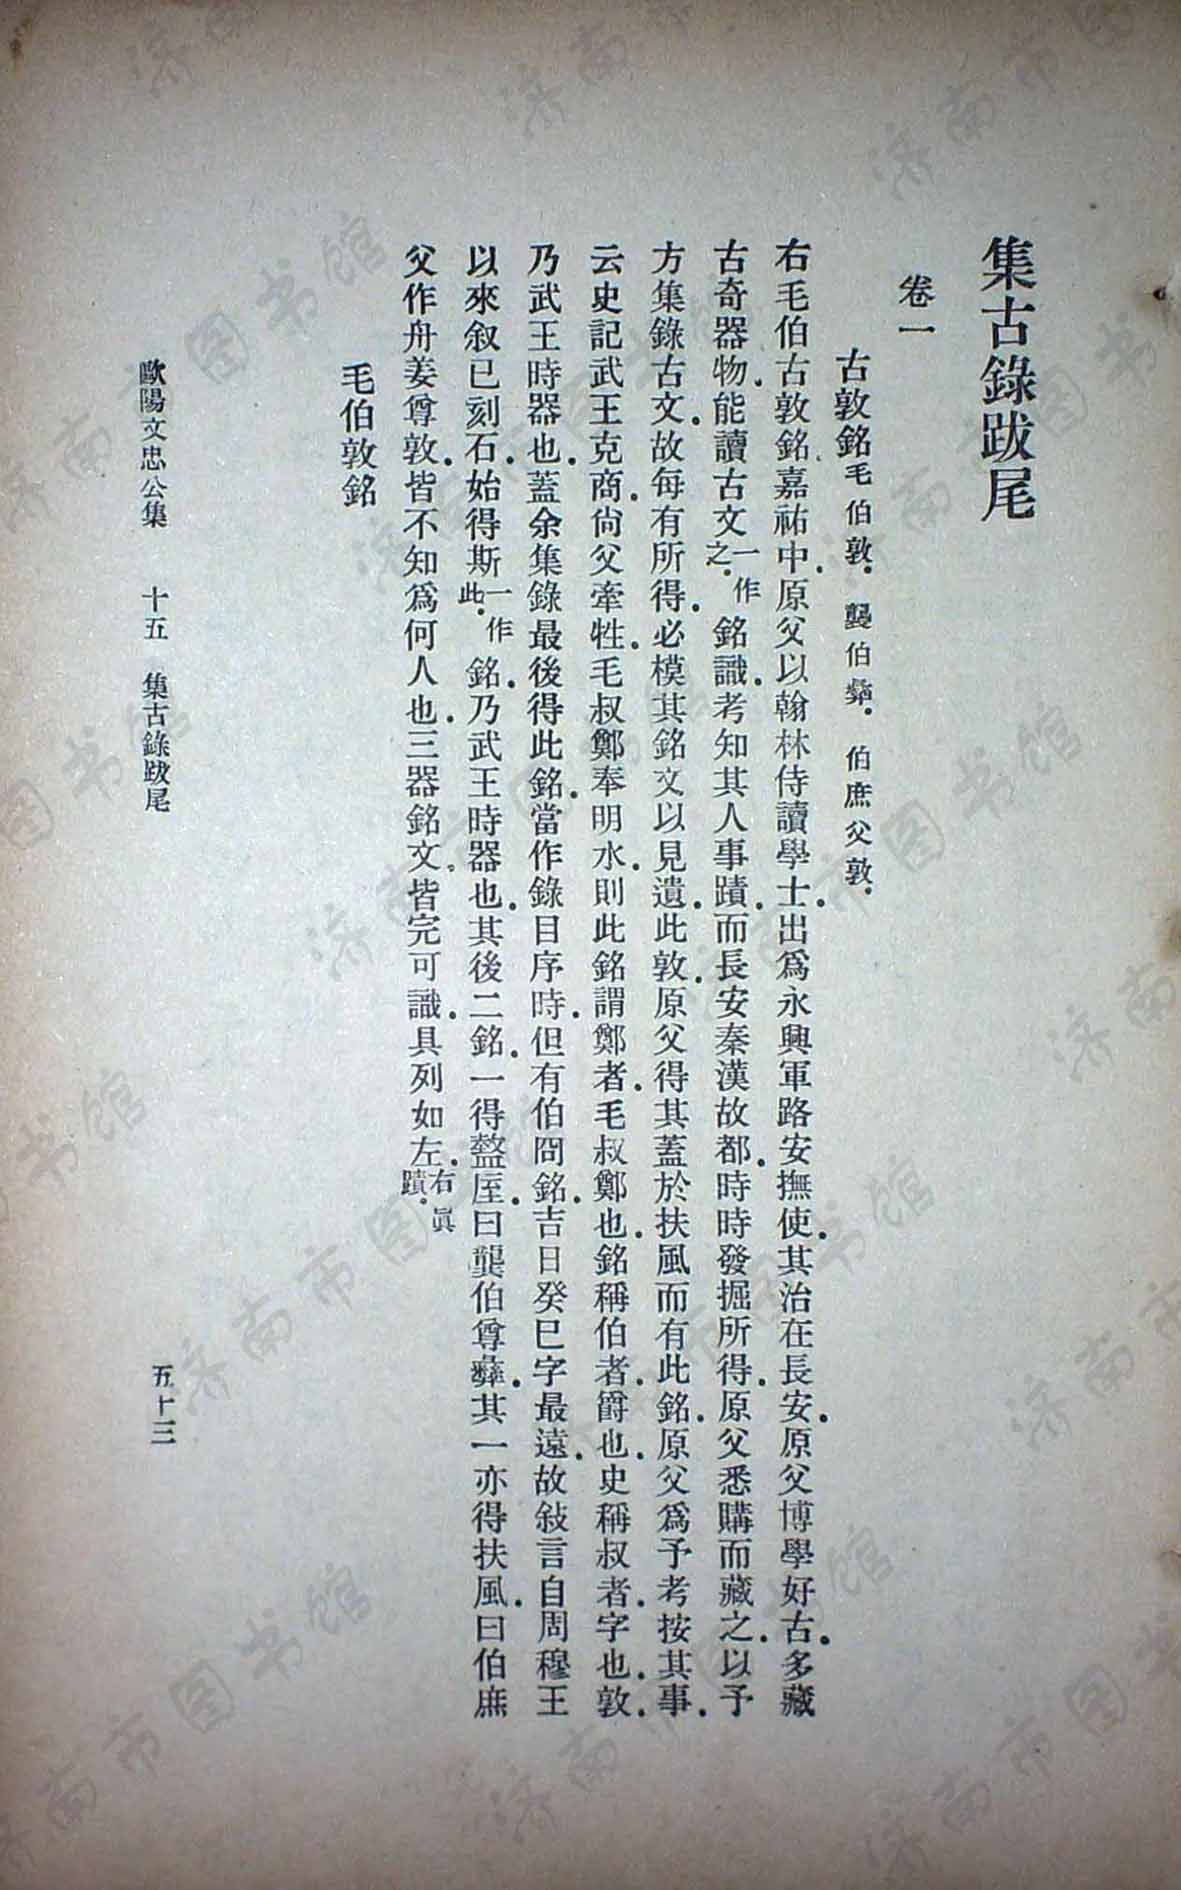 集古錄跋尾
卷一
古敦銘毛伯敦．龔伯彝．伯庶父敦．
右毛伯古敦銘．嘉祐中．原父以翰林侍讀學士．出爲永興軍路安撫使．其治在長安．原父博學好古．多藏
古奇器物．能讀古文一作之．銘識．考知其人事蹟．而長安秦漢故都．時時發掘所得．原父悉購而藏之．以予
方集錄古文．故每有所得．必模其銘文以見遺．此敦．原父得其蓋於扶風而有此銘．原父爲予考按其事．
云史記武王克商．尙父牽牲．毛叔鄭奉明水．則此銘謂鄭者．毛叔鄭也．銘稱伯者．爵也．史稱叔者．字也．敦．
乃武王時器也．蓋余集錄最後得此銘．當作錄目序時．但有伯冏銘．吉日癸巳字最遠．故敍言自周穆王
以來叙已刻石．始得斯一作此．銘．乃武王時器也．其後二銘．一得盩厔．曰龔伯尊彝．其一亦得扶風．曰伯庶
父作舟姜尊敦．皆不知爲何人也．三器銘文．皆完可識．具列如左．右眞蹟．
毛伯敦銘
歐陽文忠公集 十五 集古錄跋尾 五十三
济南市图书馆